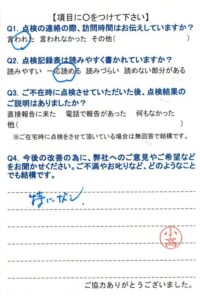 【項目に○をつけて下さい】
Q1. 点検の連絡の際、訪問時間はお伝えしていますか?
言われた 言われなかった その他( )
Q2. 点検記録表は読みやすく書かれていますか?
読みやすい 一応読める 読みづらい 読めない部分がある
Q3. ご不在時に点検させていただいた後、点検結果の
ご説明はありましたか?
直接報告に来た 電話で報告があった 何もなかった
他( )
※ご在宅時に点検させて頂いている場合は無回答で結構です。
Q4. 今後の改善の為に、弊社へのご意見やご希望など
をお聞かせください。ご不満やお叱りなど、どのようなこと
でも結構です。
特になし
小高
ご協力ありがとうございました。